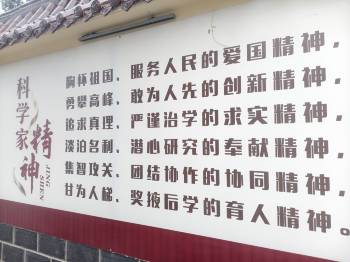 科学家
精神
JING
SHEN
胸怀祖国、服务人民的爱国精神，
勇攀高峰、敢为人先的创新精神，
追求真理、严谨治学的求实精神，
淡泊名利、潜心研究的奉献精神，
集智攻关、团结协作的协同精神，
甘为人梯、奖掖后学的育人精神。